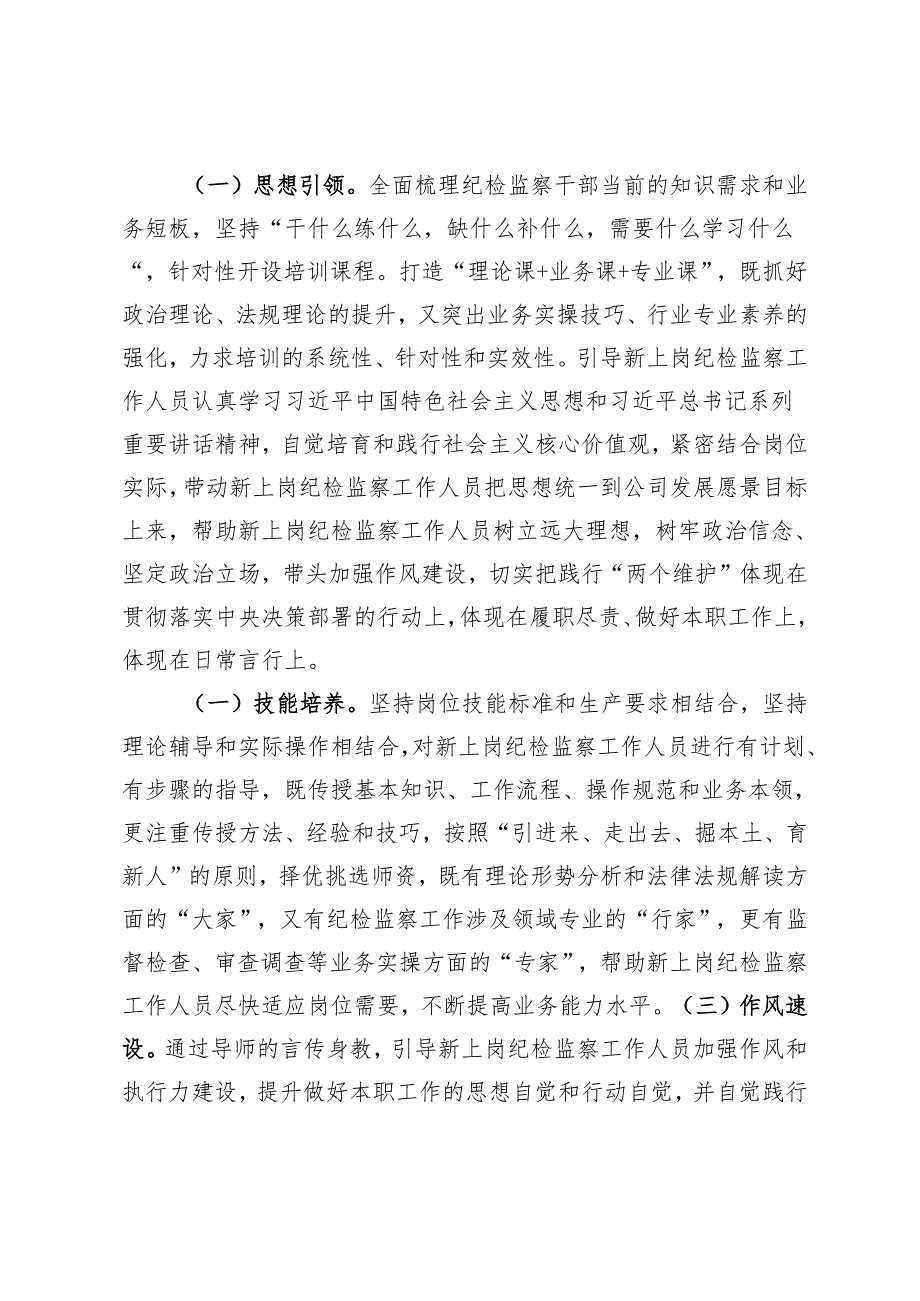 （一）思想引领。全面梳理纪检监察干部当前的知识需求和业
务短板，坚持“干什么练什么，缺什么补什么，需要什么学习什么
“，针对性开设培训课程。打造“理论课+业务课+专业课”，既抓好
政治理论、法规理论的提升，又突出业务实操技巧、行业专业素养的
强化，力求培训的系统性、针对性和实效性。引导新上岗纪检监察工
作人员认真学习习近平中国特色社会主义思想和习近平总书记系列
重要讲话精神，自觉培育和践行社会主义核心价值观，紧密结合岗位
实际，带动新上岗纪检监察工作人员把思想统一到公司发展愿景目标
上来，帮助新上岗纪检监察工作人员树立远大理想，树牢政治信念、
坚定政治立场，带头加强作风建设，切实把践行“两个维护”体现在
贯彻落实中央决策部署的行动上，体现在履职尽责、做好本职工作上，
体现在日常言行上。
（一）技能培养。坚持岗位技能标准和生产要求相结合，坚持
理论辅导和实际操作相结合，对新上岗纪检监察工作人员进行有计划、
有步骤的指导，既传授基本知识、工作流程、操作规范和业务本领，
更注重传授方法、经验和技巧，按照“引进来、走出去、掘本土、育
新人”的原则，择优挑选师资，既有理论形势分析和法律法规解读方
面的“大家”，又有纪检监察工作涉及领域专业的“行家”，更有监
督检查、审查调查等业务实操方面的“专家”，帮助新上岗纪检监察
工作人员尽快适应岗位需要，不断提高业务能力水平。（三）作风速
设。通过导师的言传身教，引导新上岗纪检监察工作人员加强作风和
执行力建设，提升做好本职工作的思想自觉和行动自觉，并自觉践行